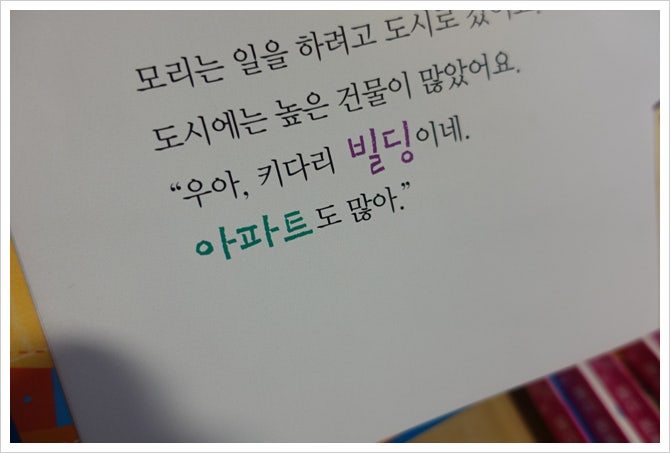 모리는 일을 하려고 도시로 갔어요.
도시에는 높은 건물이 많았어요.
“우아, 키다리 빌딩이네.
아파트도 많아.”